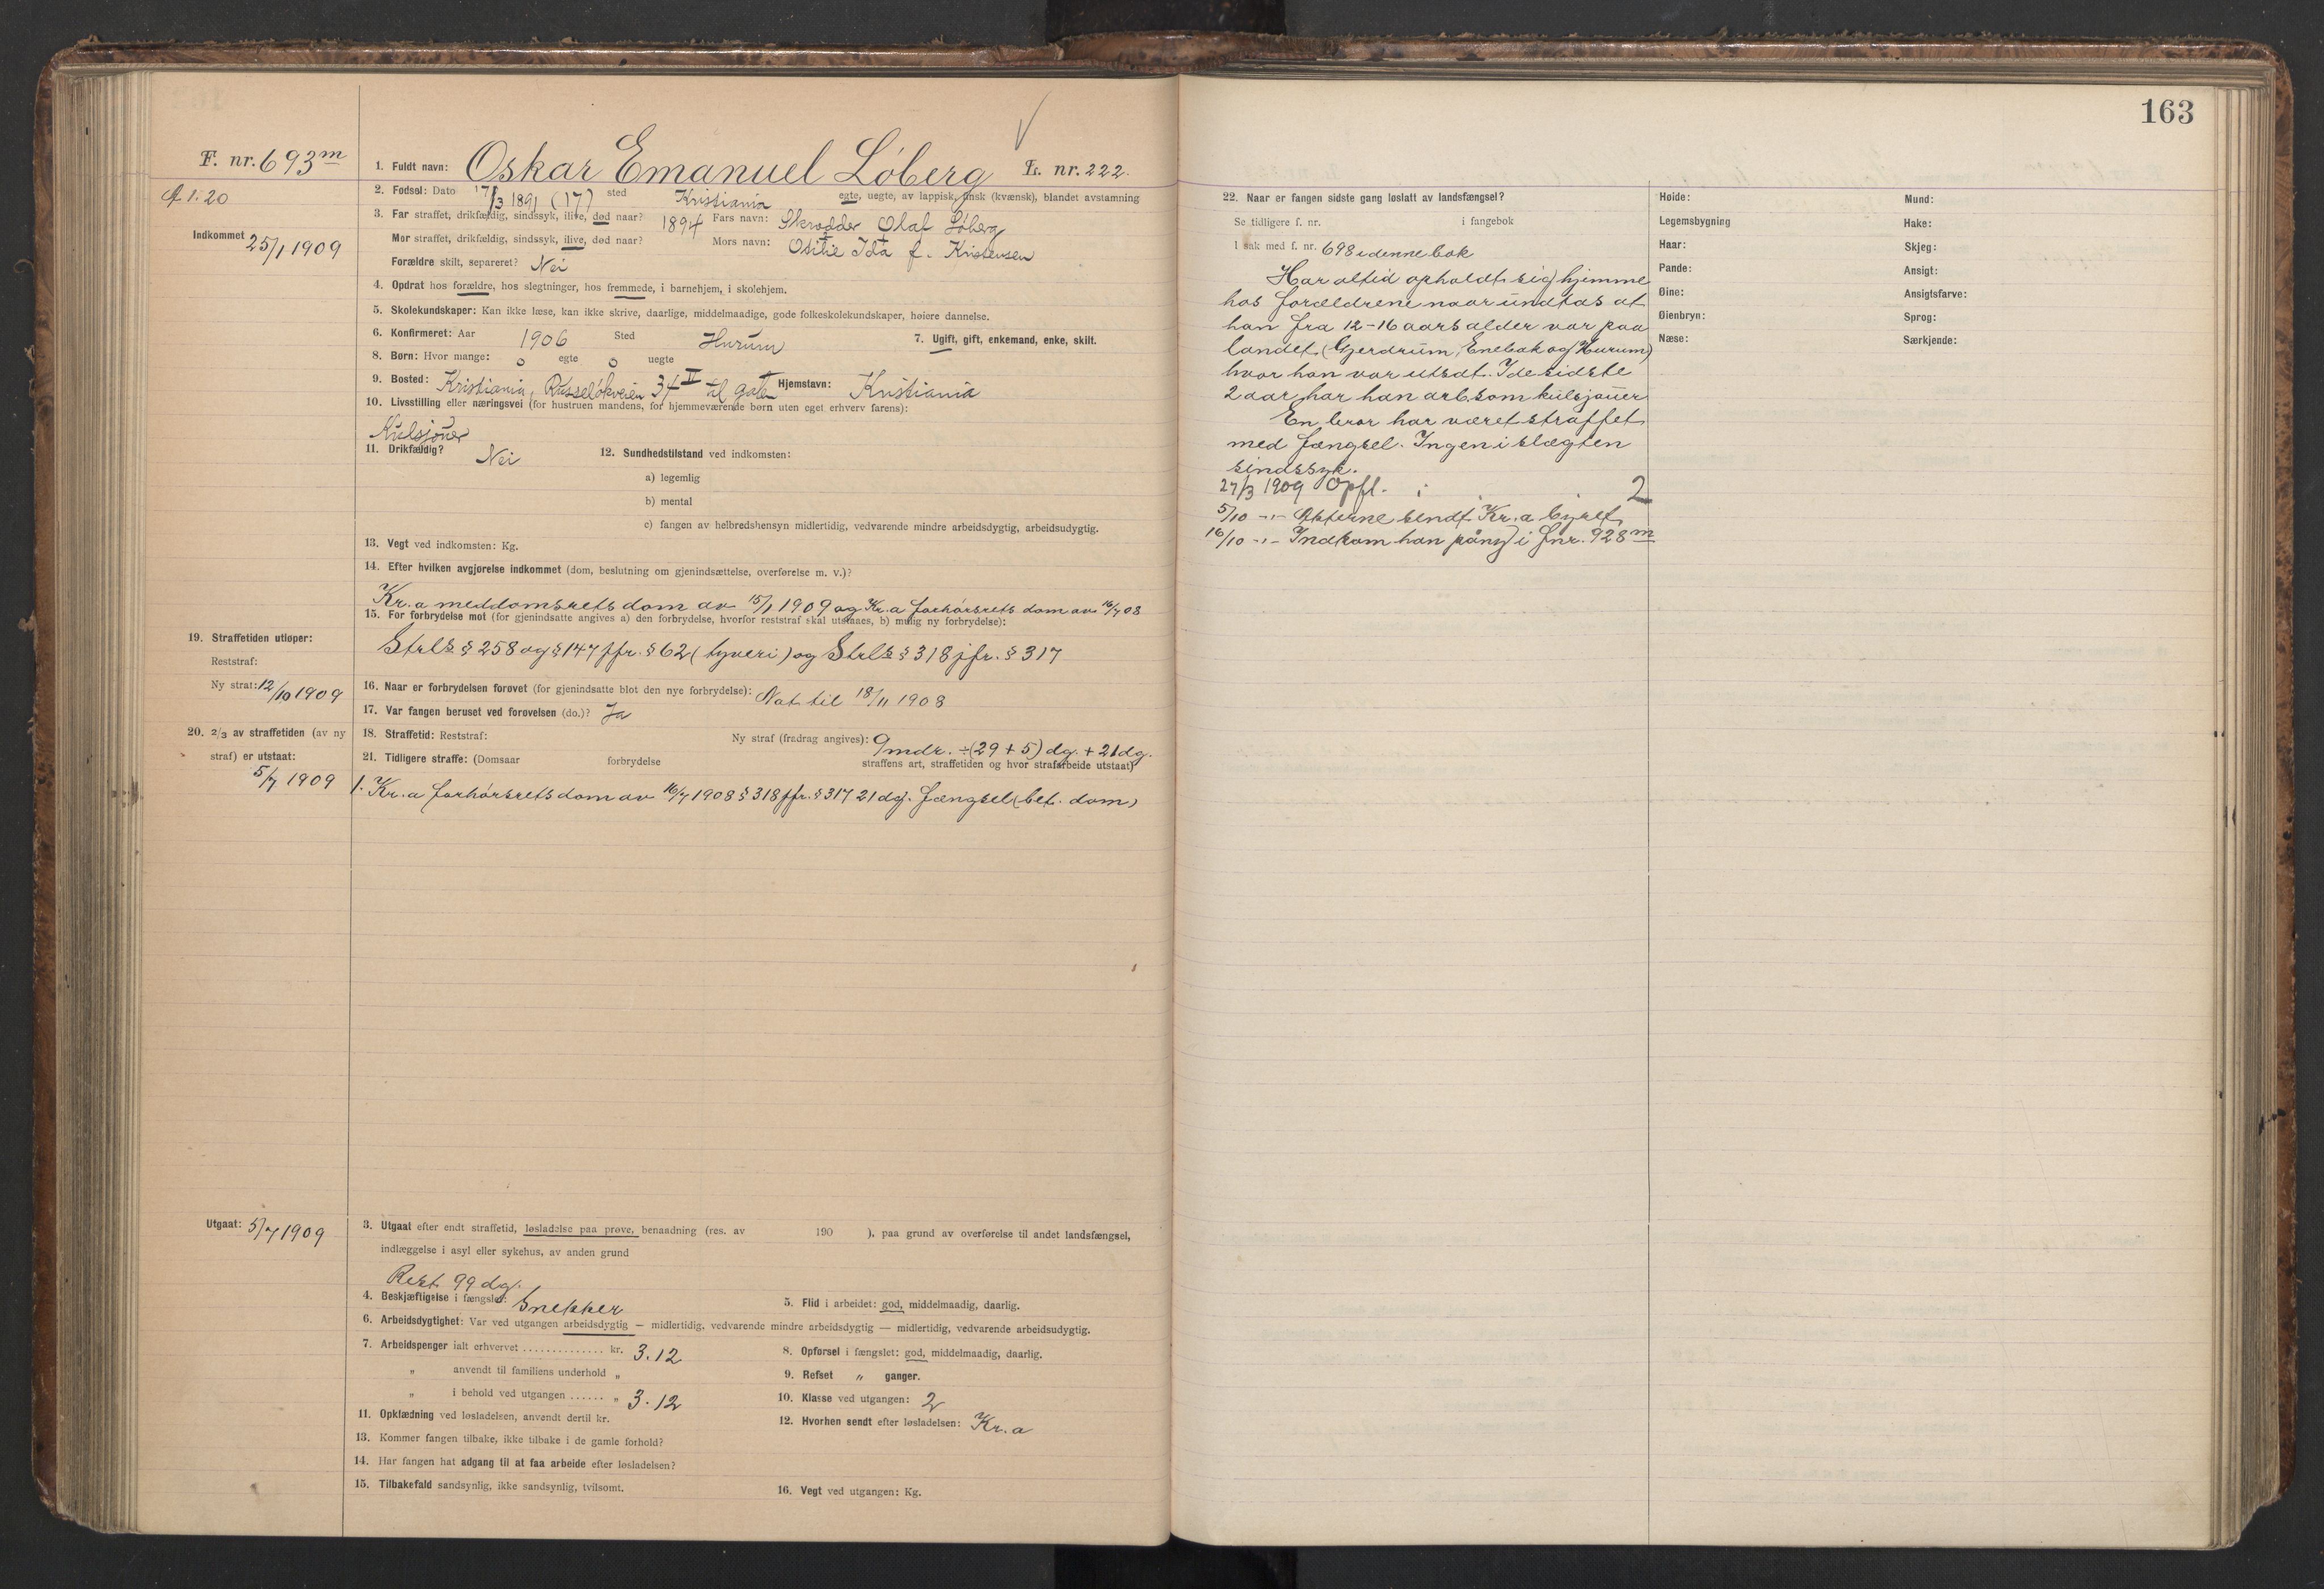 163
F. nr. 693 m
1. Fuldt navn: Oskar Emanuel Löberg L. nr. 222.
1:20
2. Fødsel: Dato 17/3 1891 (17) sted Kristiania egte, uegte, av lappisk, finsk (kvænsk), blandet avstamning
3. Far straffet, drikfældig, sindssyk, ilive, død naar? 1894 Fars navn: Skrædder Olaf Löberg
Indkommet 25/1 1909
Mor straffet, drikfældig, sindssyk, ilive, død naar? Mors navn: Otilie Ida f. Kristensen
Forældre skilt, separeret? Nei
4. Opdrat hos forældre, hos slegtninger, hos fremmede, i barnehjem, i skolehjem.
5. Skolekundskaper: Kan ikke læse, kan ikke skrive, daarlige, middelmaadige, gode folkeskolekundskaper, høiere dannelse.
6. Konfirmeret: Aar 1906 Sted Hurum 7. Ugift, gift, enkemand, enke, skilt.
8. Børn: Hvor mange: 0 egte 0 uegte
9. Bosted: Kristiania, Russelökveien 34 IV til gaten Hjemstavn: Kristiania
10. Livsstilling eller næringsvei (for hustruen mandens, for hjemmeværende børn uten eget erhverv farens):
Kulsjouer
11. Drikfældig? Nei 12. Sundhedstilstand ved indkomsten:
a) legemlig
b) mental
c) fangen av helbredshensyn midlertidig, vedvarende mindre arbeidsdygtig, arbeidsudygtig.
13. Vegt ved indkomsten: Kg.
14. Efter hvilken avgjørelse indkommet (dom, beslutning om gjenindsættelse, overførelse m. v.)?
Kr.a meddomsrets dom av 15/1 1909 og Kr.a forhörsrets dom av 16/7 08
15. For forbrydelse mot (for gjenindsatte angives a) den forbrydelse, hvorfor reststraf skal utstaaes, b) mulig ny forbrydelse):
19. Straffetiden utløper:
Strls § 258 og § 147 jfr. § 62 (tyveri) og Strls § 318 jfr. § 317
Reststraf:
Ny straf: 12/10 1909
16. Naar er forbrydelsen forøvet (for gjenindsatte blot den nye forbrydelse): Nat til 18/11 1908
17. Var fangen beruset ved forøvelsen (do.)? Ja
20. 2/3 av straffetiden (av ny
18. Straffetid: Reststraf: Ny straf (fradrag angives): 9 mdr. ÷ (29 + 5) dg. + 21 dg.
straf) er utstaat:
21. Tidligere straffe: (Domsaar forbrydelse straffens art, straffetiden og hvor strafarbeide utstaat)
5/7 1909
1. Kr.a forhörsrets dom av 16/7 1908 § 318 jfr. § 317 21 dg. fængsel (bet. dom)
Utgaat: 5/7 1909
3. Utgaat efter endt straffetid, løsladelse paa prøve, benaadning (res. av 190 ), paa grund av overførelse til andet landsfængsel,
indlæggelse i asyl eller sykehus, av anden grund
Rest 99 dg.
4. Beskjæftigelse i fængslet: Snekker 5. Flid i arbeidet: god, middelmaadig, daarlig.
6. Arbeidsdygtighet: Var ved utgangen arbeidsdygtig — midlertidig, vedvarende mindre arbeidsdygtig — midlertidig, vedvarende arbeidsudygtig.
7. Arbeidspenger ialt erhvervet .............. kr. 3.12 8. Opførsel i fængslet: god, middelmaadig, daarlig.
„ anvendt til familiens underhold „ 9. Refset „ ganger.
„ i behold ved utgangen ...... „ 3.12 10. Klasse ved utgangen: 2
11. Opklædning ved løsladelsen, anvendt dertil kr. 12. Hvorhen sendt efter løsladelsen: Kr.a
13. Kommer fangen tilbake, ikke tilbake i de gamle forhold?
14. Har fangen hat adgang til at faa arbeide efter løsladelsen?
15. Tilbakefald sandsynlig, ikke sandsynlig, tvilsomt. 16. Vegt ved utgangen: Kg.
22. Naar er fangen sidste gang løslatt av landsfængsel?
Se tidligere f. nr. i fangebok
I sak med f. nr. 698 i denne bok
Har altid opholdt sig hjemme
hos forældrene naar undtas at
han fra 12-16 aars alder var paa
landet (Gjerdrum, Enebak og Hurum)
hvor han var utsat. I de sidste
2 aar har han arb. som kulsjouer
En bror har været straffet
med fængsel. Ingen i slægten
sindssyk.
27/3 1909 Opfl. i 2
5/10 -"- Akterne sendt Kr.a byret
16/10 -"- Indkom han påny i fnr. 928 m
Høide: Mund:
Legemsbygning Hake:
Haar: Skjeg:
Pande: Ansigt:
Øine: Ansigtsfarve:
Øienbryn: Sprog:
Næse: Særkjende: